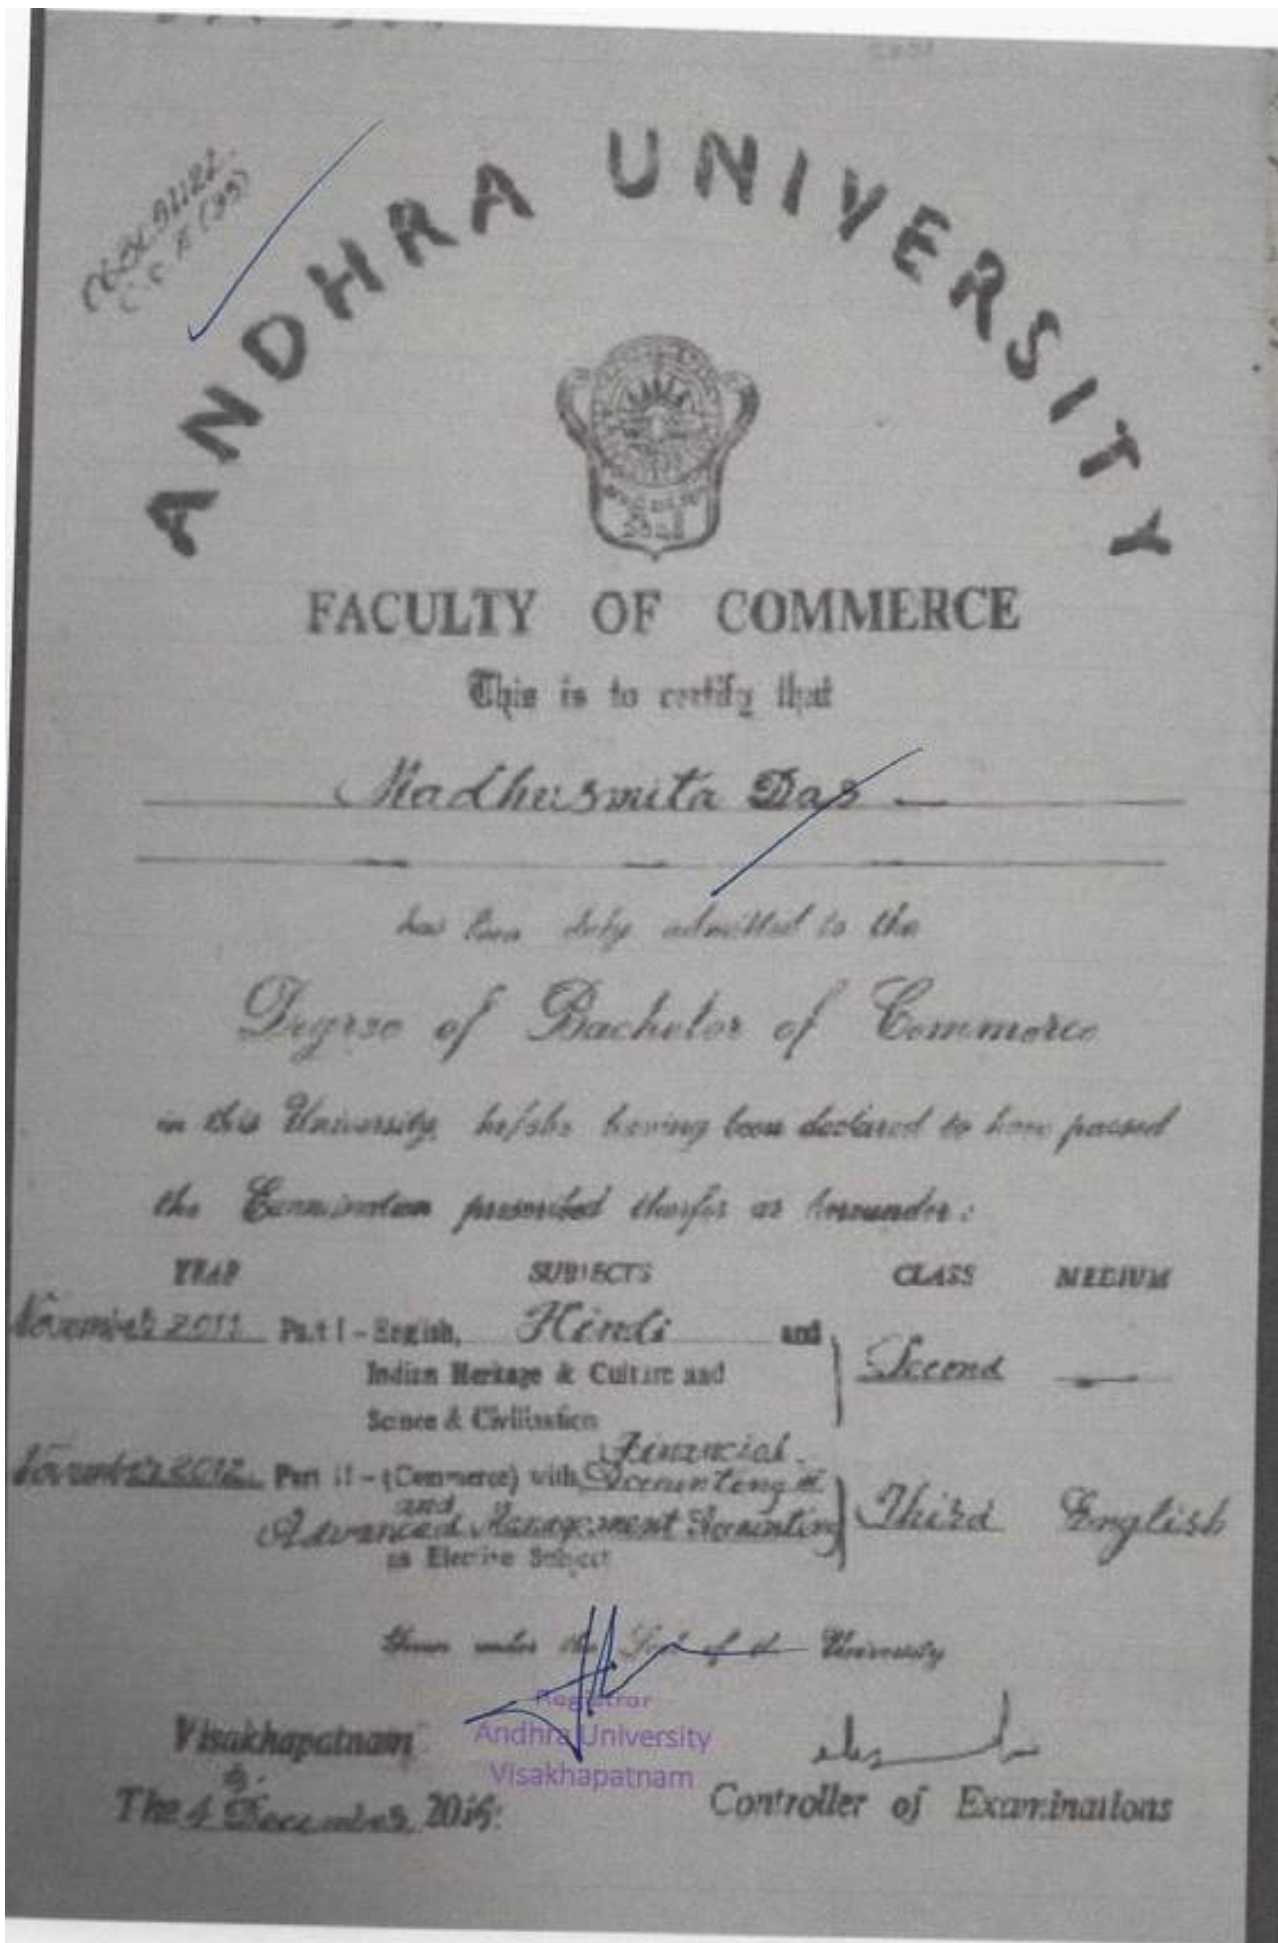 ANDHRA UNIVERSITY
FACULTY OF COMMERCE
This is to certify that
Madhusmita Das
has been duly admitted to the
Degree of Bachelor of Commerce
in this University, he/she having been declared to have passed
the Examination prescribed therfor as hereunder:
YEAR SUBJECTS CLASS MEDIUM
November 2011 Part I - English, Hindi and
Indian Heritage & Culture and Second —
Science & Civilisation
Financial
November 2012 Part II - (Commerce) with Accounting
and
Advanced Management Accounting Third English
as Elective Subject
Given under the Seal of the University
Registrar
Visakhapatnam Andhra University
Visakhapatnam
The December Controller of Examinations